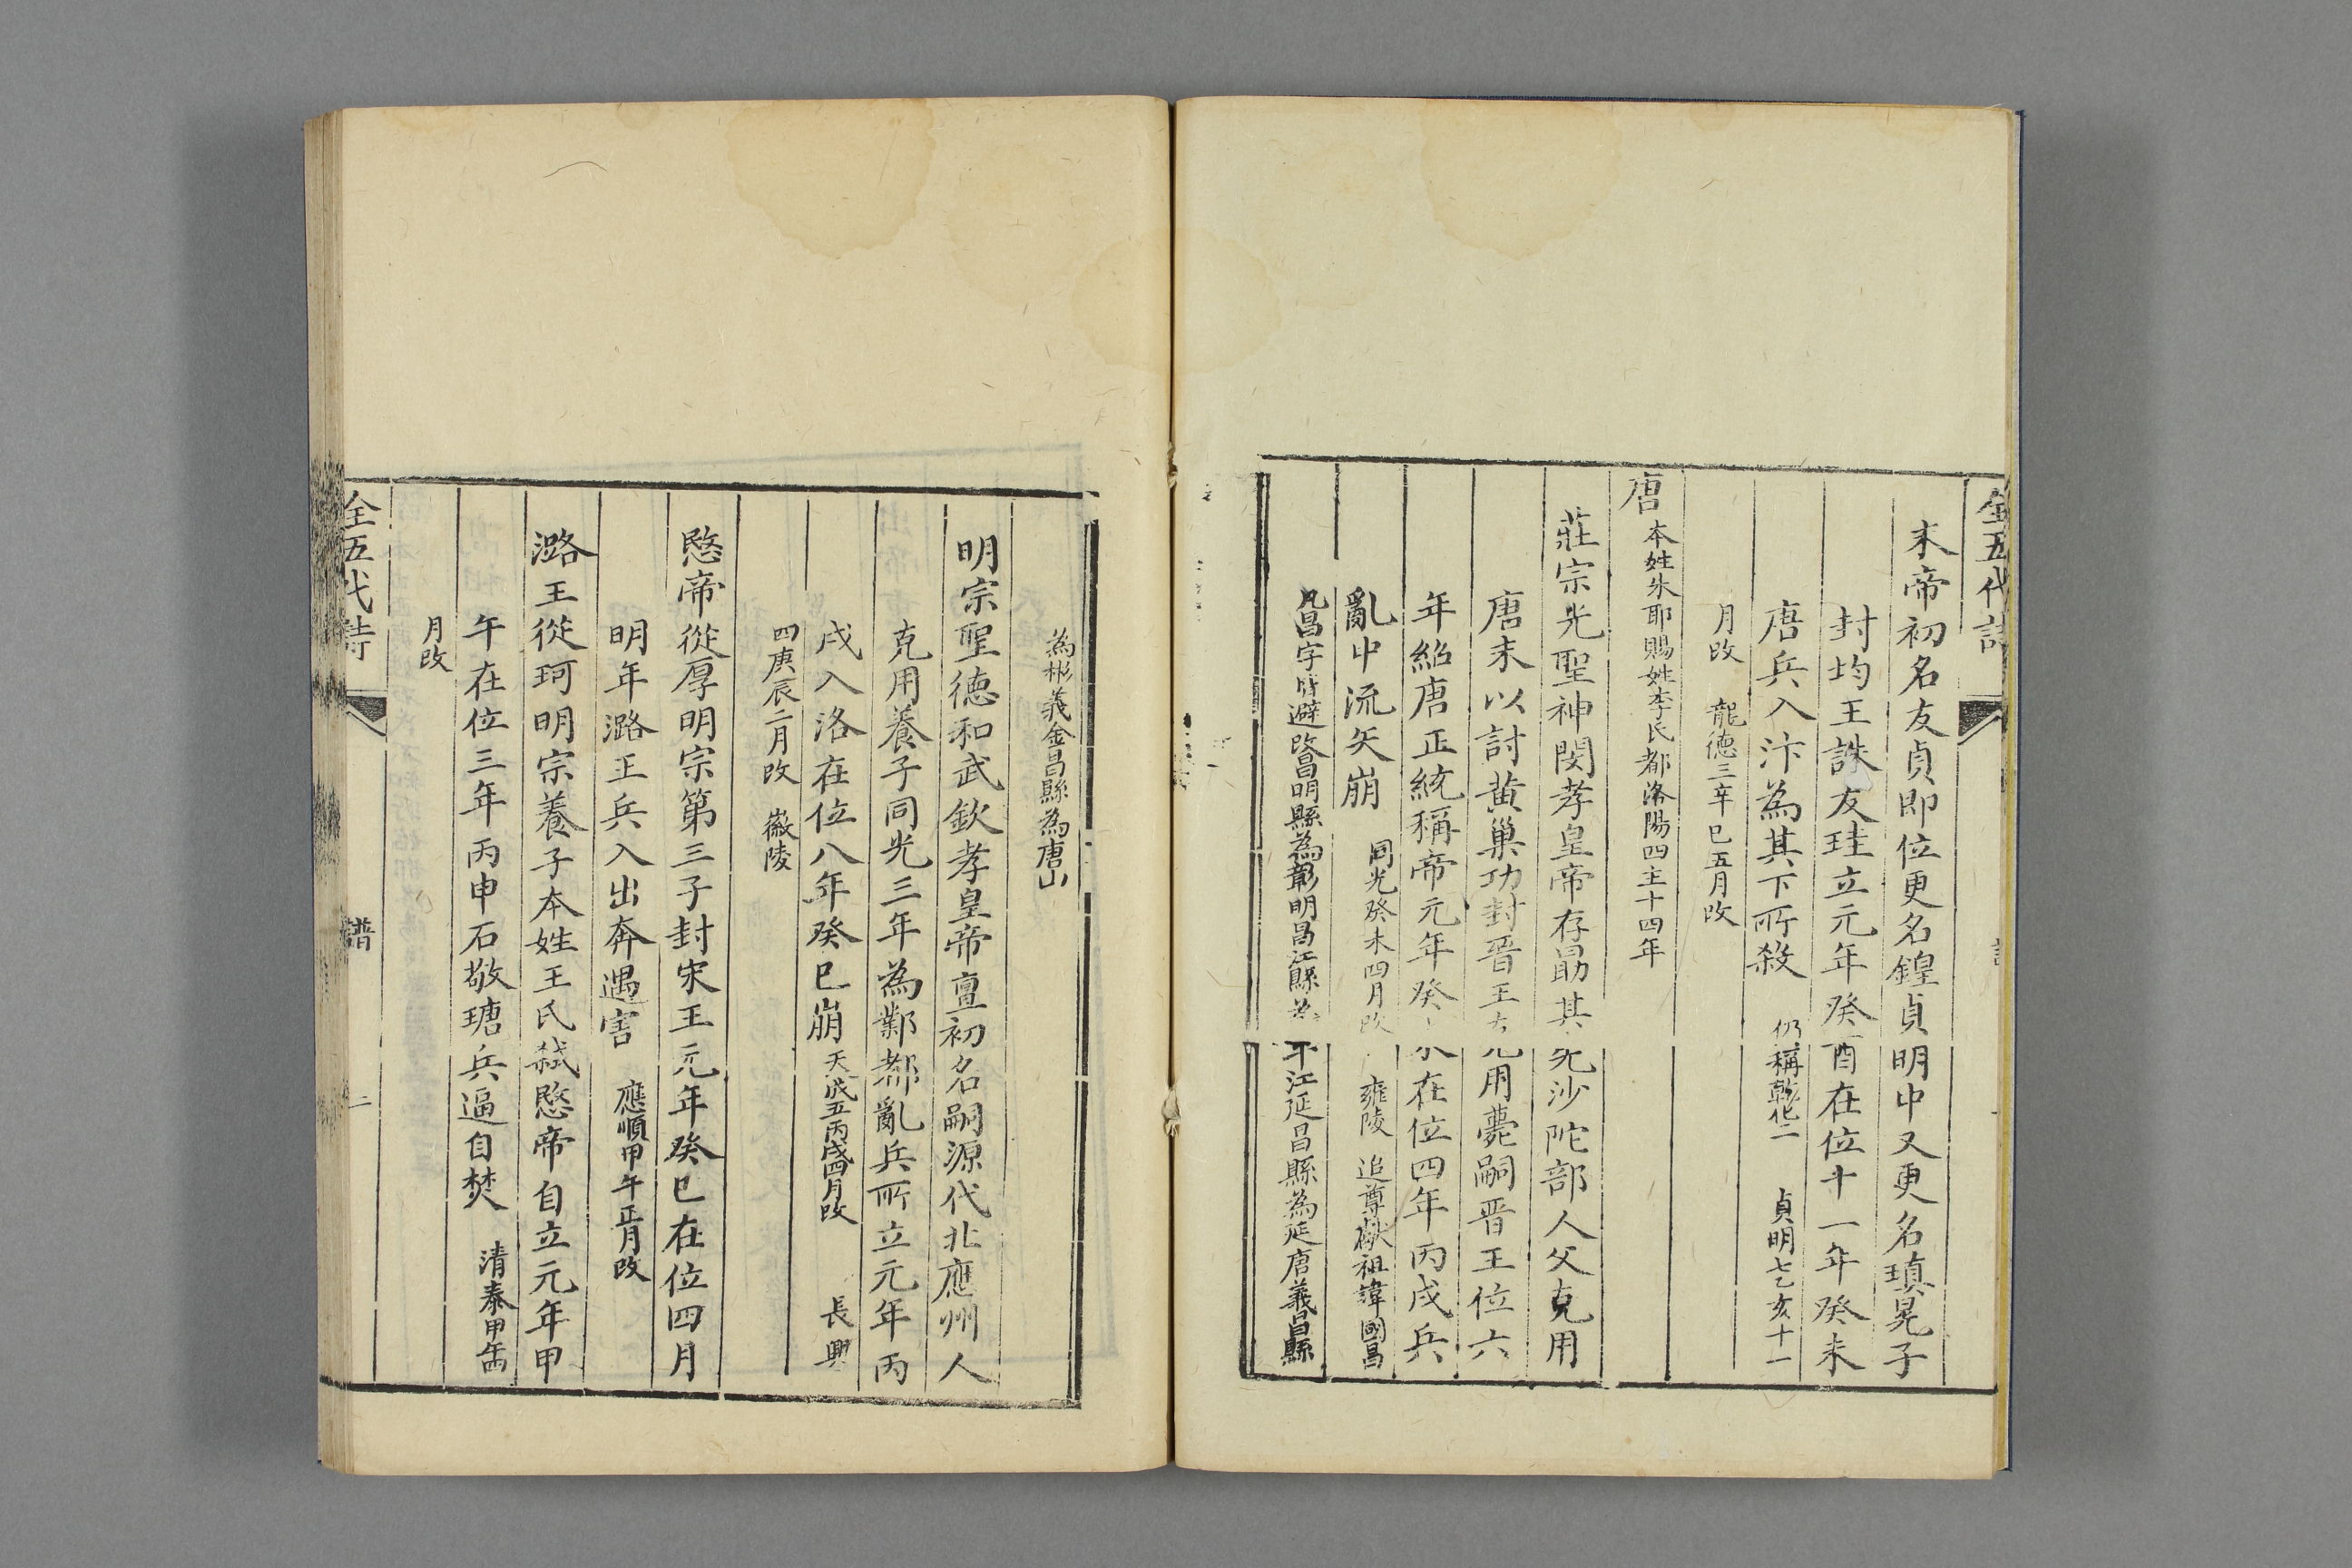 全五代詩
末帝初名友貞即位更名鍠貞明中又更名瑱晃子
封均王誅友珪立元年癸酉在位十一年癸未
唐兵入汴為其下所殺 仍稱乾化二 貞明七乙亥十一
月改 龍德三辛巳五月改
唐 本姓朱耶賜姓李氏都洛陽四主十四年
莊宗光聖神閔孝皇帝存勗其先沙陀部人父克用
唐末以討黃巢功封晉王克用薨嗣晉王位六
年紹唐正統稱帝元年癸未在位四年丙戌兵
亂中流矢崩 同光癸未四月改 雍陵 追尊獻祖諱國昌
凡昌字皆避改昌明縣為彰明昌江縣為平江延昌縣為延唐義昌縣
為彬義金昌縣為唐山
明宗聖德和武欽孝皇帝亶初名嗣源代北應州人
克用養子同光三年為鄴都亂兵所立元年丙
戌入洛在位八年癸巳崩 天成五丙戌四月改 長興
四庚辰二月改 徽陵
愍帝從厚明宗第三子封宋王元年癸巳在位四月
明年潞王兵入出奔遇害 應順甲午正月改
潞王從珂明宗養子本姓王氏弒愍帝自立元年甲
午在位三年丙申石敬瑭兵逼自焚 清泰甲午四
月改
全五代詩 譜 二